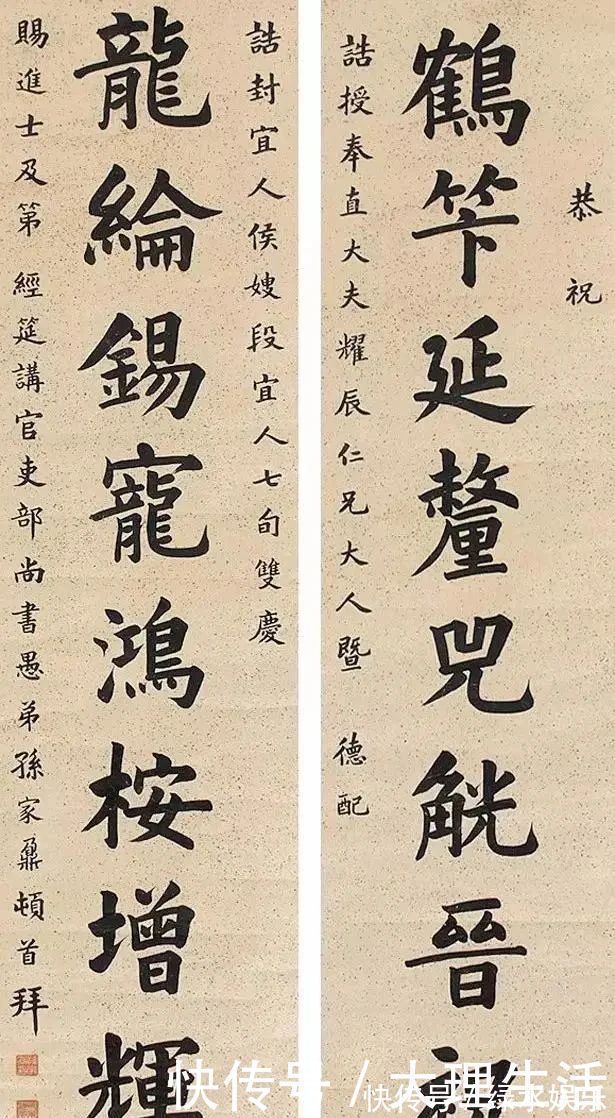 恭祝
鶴笇延釐兕觥晉
誥授奉直大夫耀辰仁兄大人暨 德配
誥封宜人侯嫂段宜人七旬雙慶
龍綸錫寵鴻桉增輝
賜進士及第 經筵講官吏部尚書愚弟孫家鼐頓首拜
快传号 / 大理生活
快传号